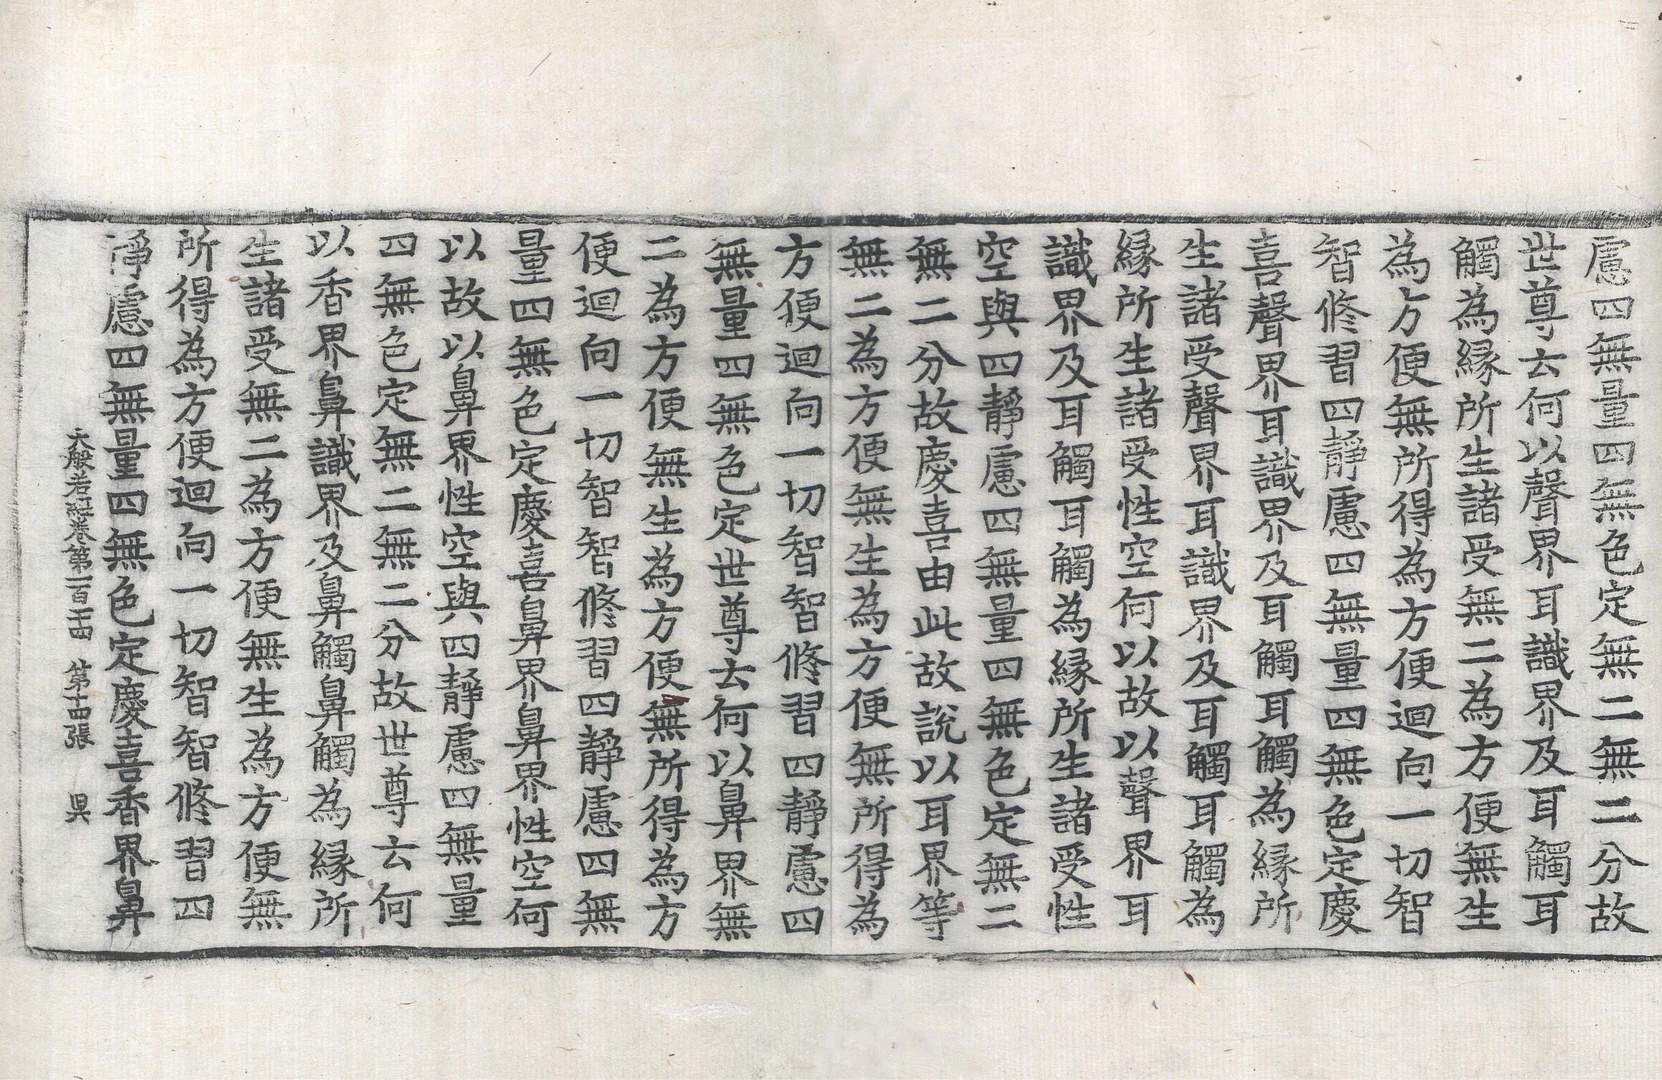 慮四無量四無色定無二無二分故
世尊云何以聲界耳識界及耳觸耳
觸為縁所生諸受無二為方便無生
為方便無所得為方便迴向一切智
智修習四靜慮四無量四無色定慶
喜聲界耳識界及耳觸耳觸為縁所
生諸受聲界耳識界及耳觸耳觸為
縁所生諸受性空何以故以聲界耳
識界及耳觸耳觸為縁所生諸受性
空與四靜慮四無量四無色定無二
無二分故慶喜由此故說以耳界等
無二為方便無生為方便無所得為
方便迴向一切智智修習四靜慮四
無量四無色定世尊云何以鼻界無
二為方便無生為方便無所得為方
便迴向一切智智修習四靜慮四無
量四無色定慶喜鼻界鼻界性空何
以故以鼻界性空與四靜慮四無量
四無色定無二無二分故世尊云何
以香界鼻識界及鼻觸鼻觸為縁所
生諸受無二為方便無生為方便無
所得為方便迴向一切智智修習四
靜慮四無量四無色定慶喜香界鼻
大般若經卷第一百十四　第十四張　昃